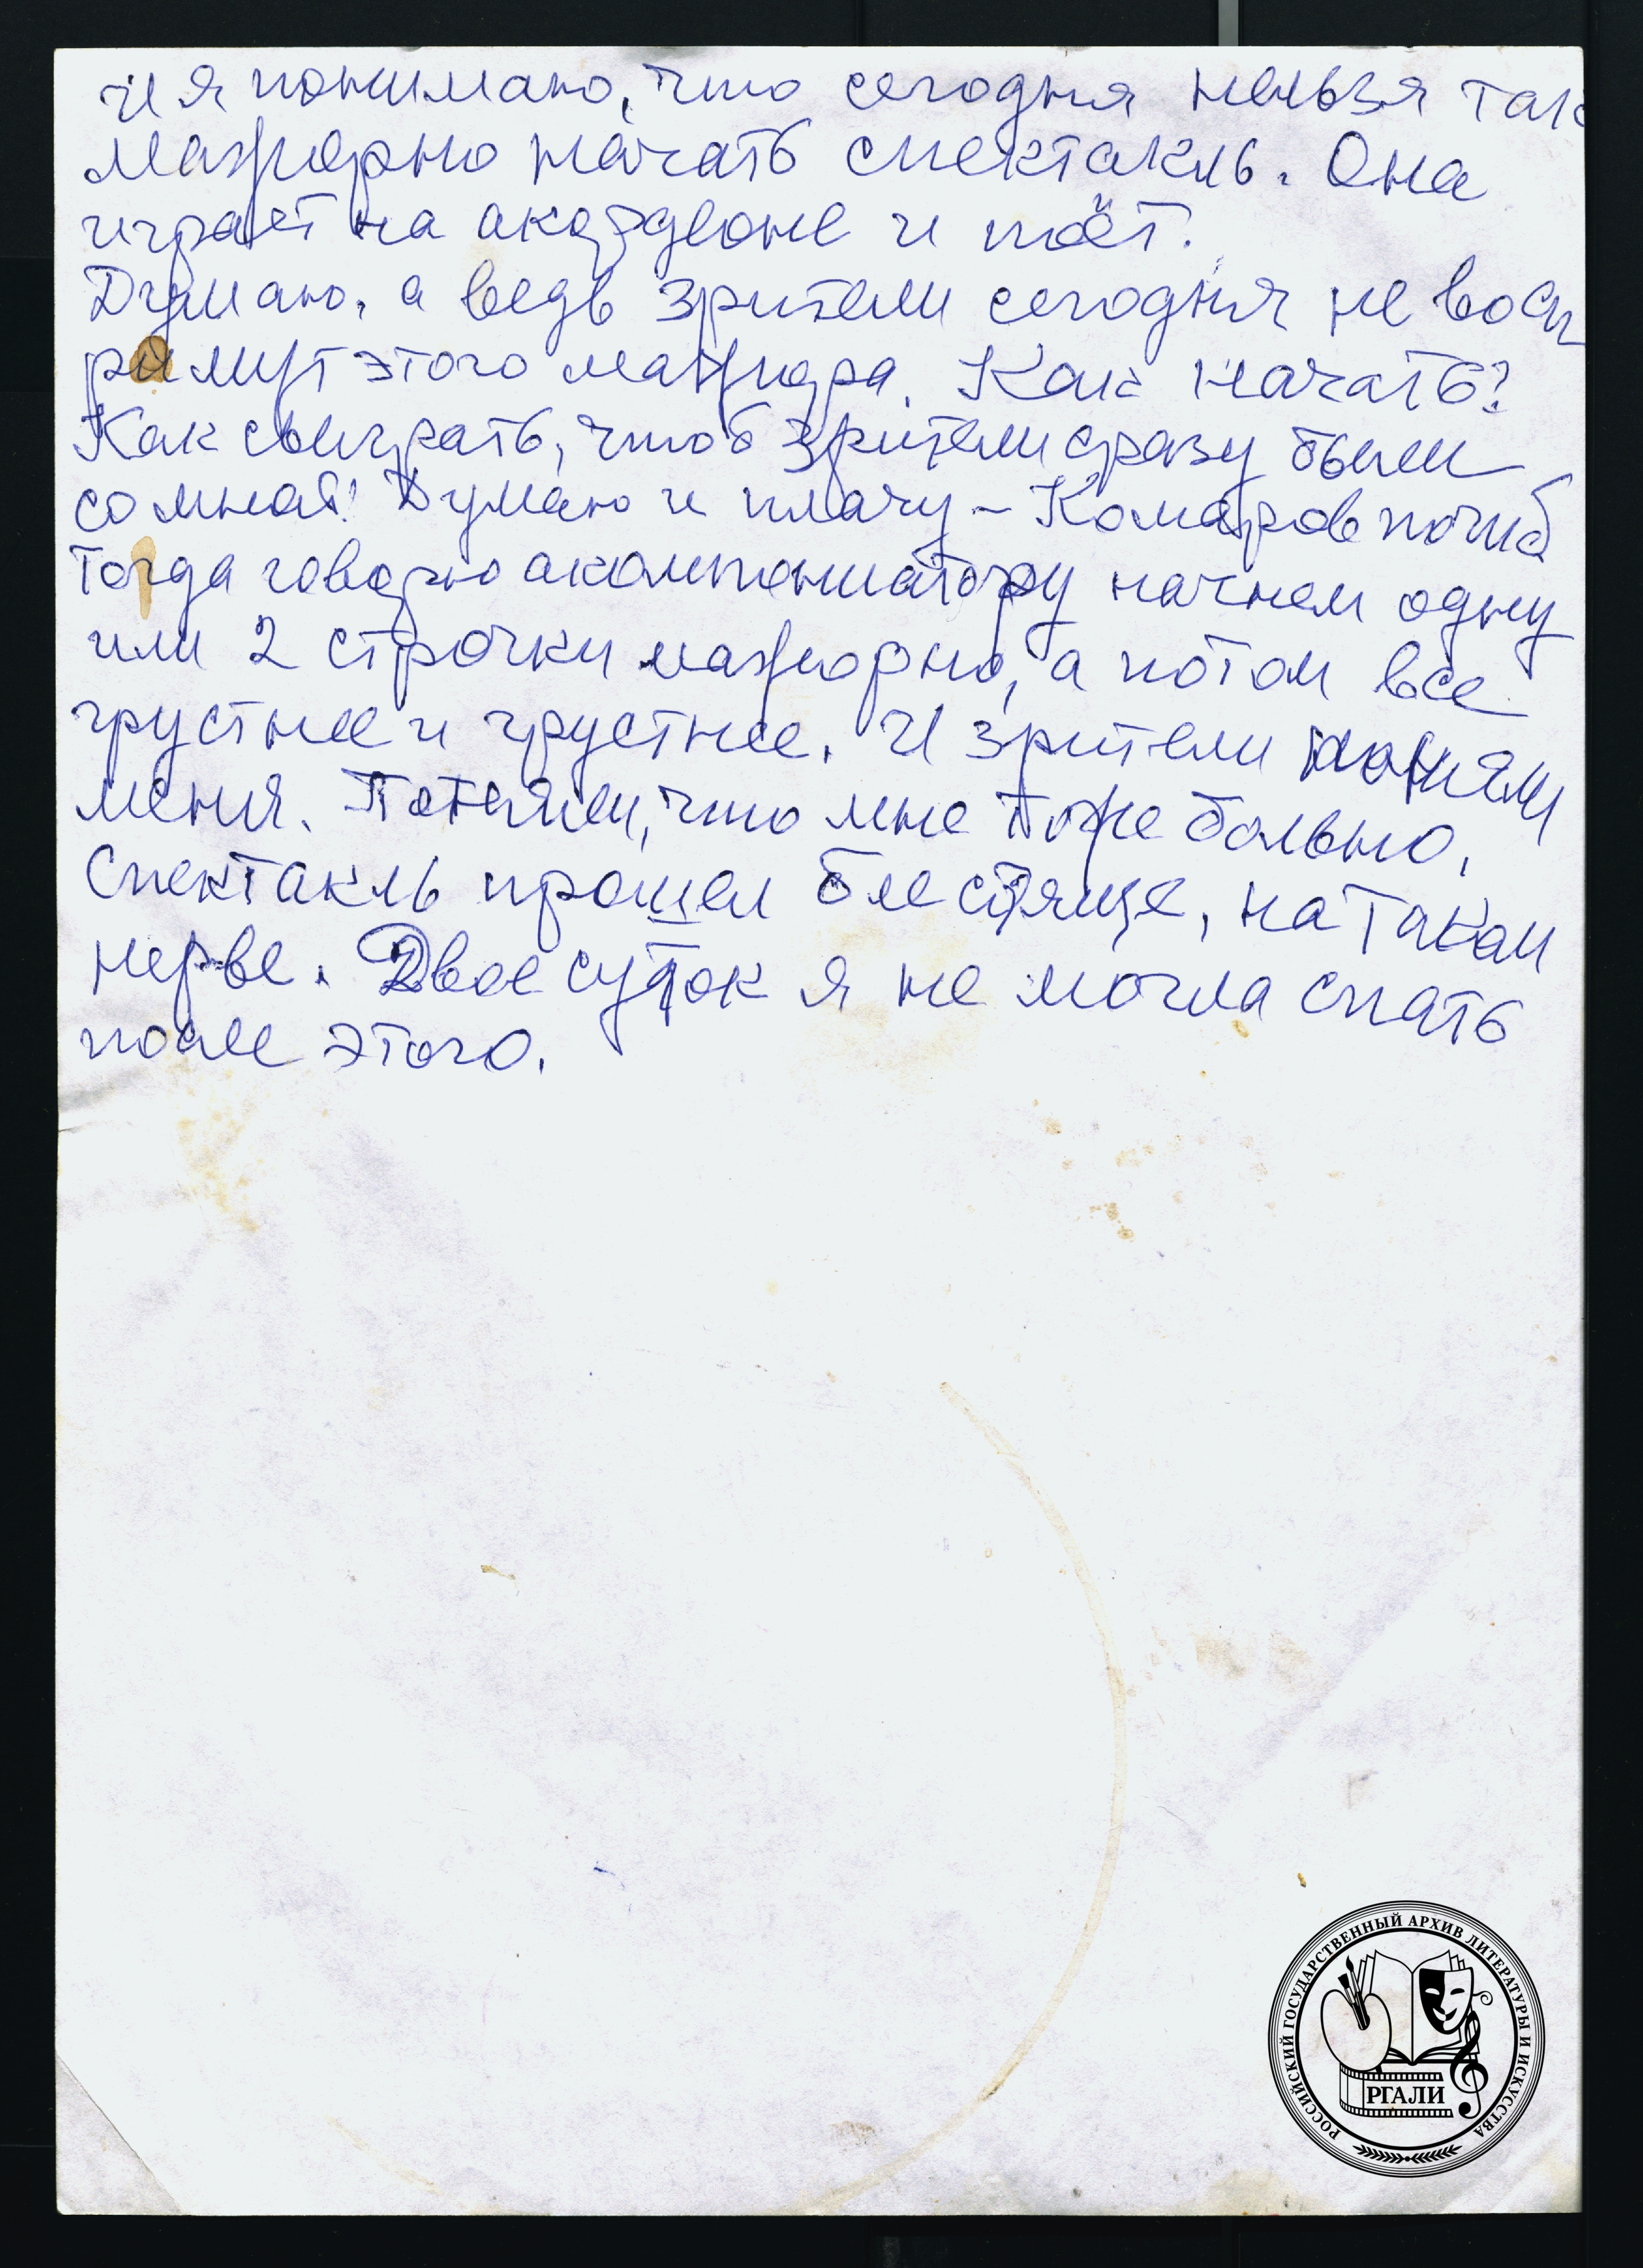 И я понимаю, что сегодня нельзя так
мажорно начать спектакль. Она
играет на акордеоне и поёт.
Думаю, а ведь зрители сегодня не восп
римут этого мажора. Как начать?
Как сыграть, чтоб зрители сразу были
со мной? Думаю и плачу – Комаров погиб
Тогда говорю акомпониатору начнем одну
или 2 строчки мажорно, а потом все
грустнее и грустнее. И зрители поняли
меня. Поняли, что мне тоже больно.
Спектакль прошел блестяще, на таком
нерве. Двое суток я не могла спать
после этого.
РОССИЙСКИЙ ГОСУДАРСТВЕННЫЙ АРХИВ ЛИТЕРАТУРЫ И ИСКУССТВА
РГАЛИ